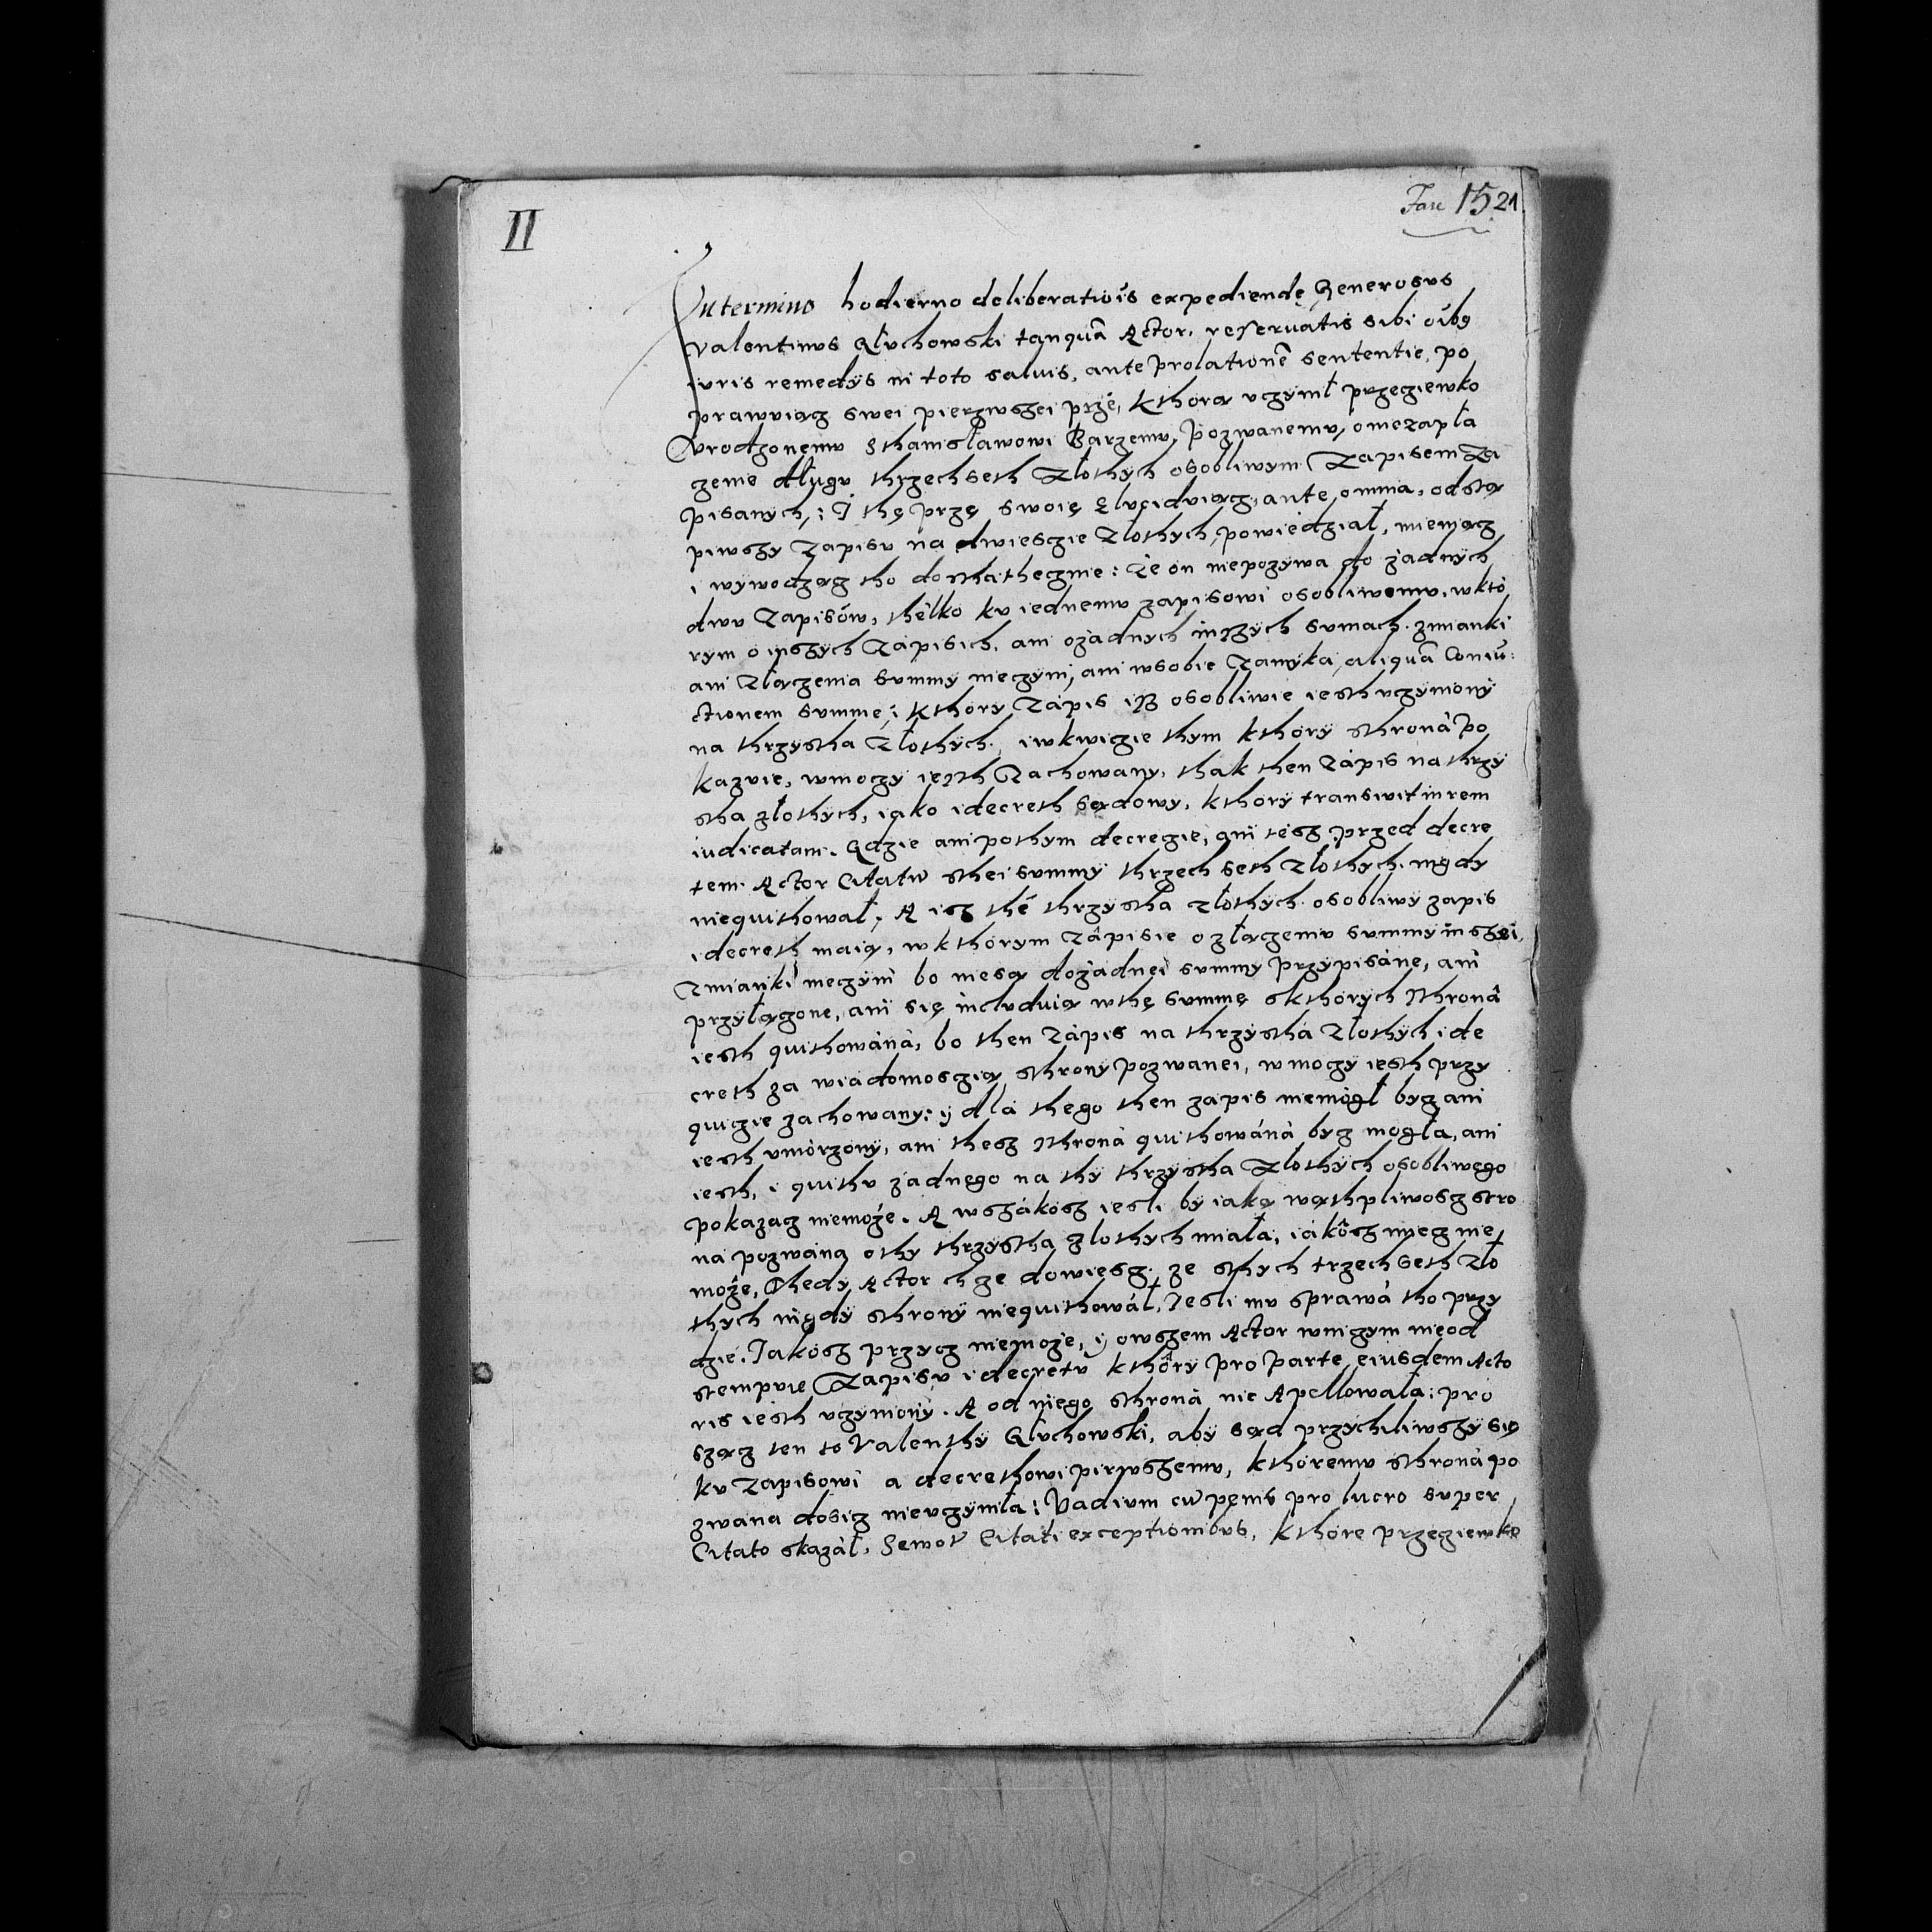 II
Fasc 15 21
In termino hodierno deliberatiõis expediendę Generosvs
Valentinvs Glvchowski tanquã Actor, reservatis sibi oĩbq
ivris remedÿs in toto salvis, ante prolationẽ sententie, po
prawviącz swei pierzwszei przé, kthorą vczynił przeciewko
Vrodzonemv Sthanisławowi Barzemv, Pozwanemv, o niezapła
czenie dlugv thrzech seth Złothych osobliwym Zapisem Za
pisanych,: I thę przę swoię Elvcidviącz, ante omnia, odstą
piwszy Zapisv na dwieście Złothych, powiedział, mieniącz
i wywodzącz tho dosthathecznie: Że on niepozywa do żadnÿch
dwv Zapisów, thélko kv iednemv zapisowi osobliwemv, w któ
rym o inszÿch Zapisiech, ani o żadnych inszÿch svmach zmianki
ani Złączenia svmmy nieczyni, ani w sobie Zamÿka, aliquã Coniv̄:
ctionem svmme; kthorÿ Zápis isz osobliwie iesth vczÿnionÿ
na thrzÿstha Złothÿch, i w kwiczie thym kthorÿ sthronà po
kazvie, w moczy iesth Zachowany, thak then Zápis na thrzÿ
stha złothÿch, iako i decreth sądowy, kthorÿ transivit in rem
iudicatam. Gdzie ani pothym decrecie, ani tész przed decre
tem. Actor Citatũ sthei svmmÿ thrzech seth Złothych nigdÿ
niequithował, A isz thé thrzÿstha Złothÿch osobliwÿ zapis
i decreth maią, w kthorym Zápisie o złączeniv svmmÿ inszei,
Zmianki nieczÿni bo niesą do żadnei svmmy przypisáne, ani
przÿłączone, ani się inclvdvią w thę svmmę s kthorych sthronâ
iesth quithowánà, bo then Zápis na thrzÿsthá Złothÿch i de
creth za wiadomoscią sthrony pozwanei, w moczÿ iesth przy
quiczie zachowany: ÿ dlá thego then zapis niemógł bycz ani
iesth vmórzonÿ, ani thesz sthronà quithowánà bycz mogła, ani
iesth, i quithv żadnego na thÿ thrzÿstha Złothÿch osobliwego
pokazacz niemoże. A wszákósz iesli bÿ iaką wąthpliwosz stro
na pozwána o thÿ thrzÿstha złothych miała, iákôsz miecz nie
może, Thedÿ Actor chcze dowiescz. ze sthych trzech seth Zło
thych nigdÿ sthronÿ niequithowáł, Iesli mv sprawà tho przÿ
dzie. Iakósz przycz niemoże, ÿ owszem Actor w niczym nieod
stempvie Zapisv i decretv kthôrÿ pro parte eiusdem Acto
ris iesth vczynionÿ. A od niego sthronà nie Apellowała: pro
szącz ten to Valenthÿ Glvchowski, abÿ sąd przychiliwszÿ się
kv Zapisowi a decrethowi pirwszemv, kthóremv sthronà po
zwana dosicz nievczyniła: Vadivm cũ pęnis pro lucro svper
Citato skazáł, Semot Citati exceptionibvs, kthore przeciewko